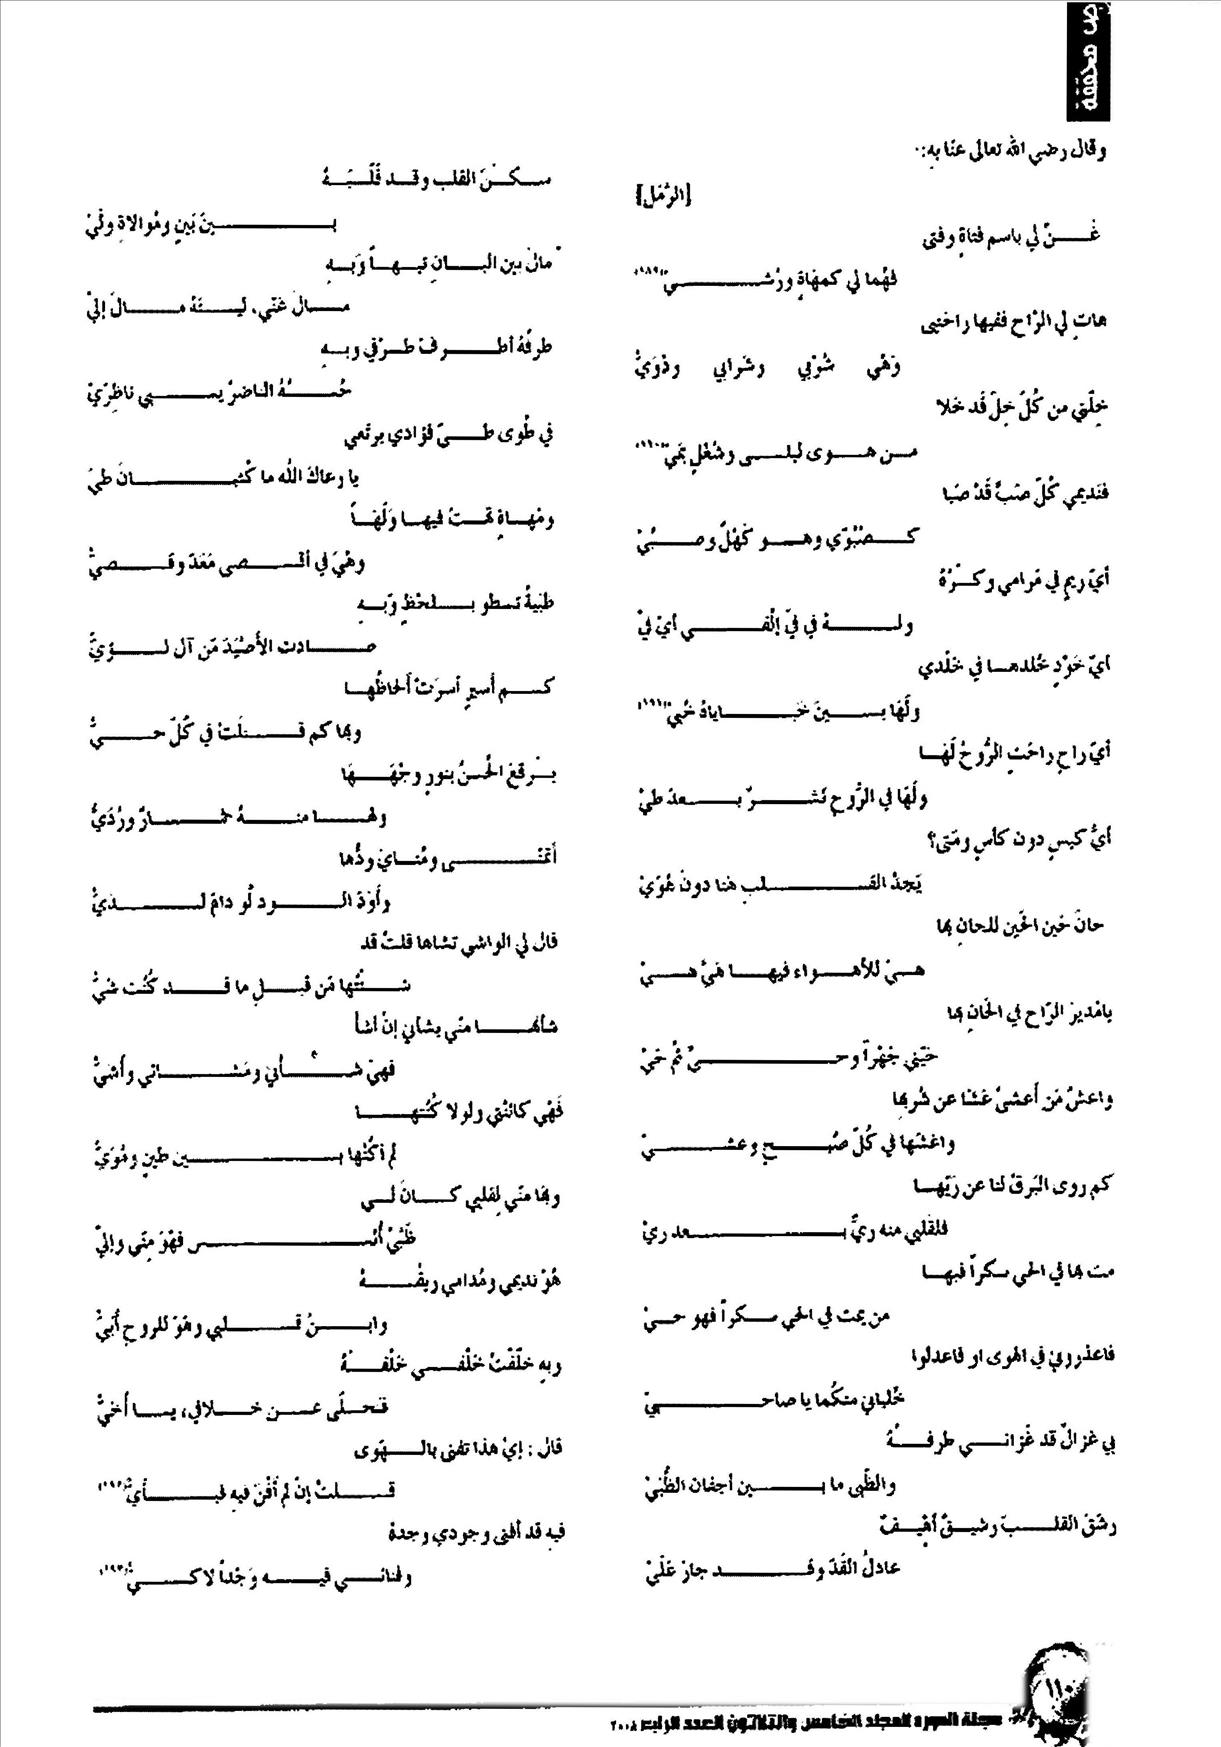 ص محققة
وقال رضي الله تعالى عنا به:
[الرَّمَل]
غَنِّ لي باسم فتاةٍ وفتى
فهُما لي كمهَاةٍ ورُشَيْ (١٨٩)
هاتِ لي الرّاح ففيها راحتي
وَهْي شُرْبي وشرابي ودُوَيُّ
خِلّتي من كُلِّ خِلٍّ قَد خَلا
من هوى لبلى وشُغْلٍ بمَيّ (١٩٠)
فنَديمي كُلّ صَبٍّ قَدْ صَبَا
كصُبُوّي وهو كَهْلٌ وصُبَيْ
أيّ ريمٍ في مَرامي وكْرُهُ
وله في فيّ إلْفي أيّ فيْ
أيّ خَوْدٍ خُلدها في خَلَدي
ولَهَا بينَ خَباياهُ خُبيْ (١٩١)
أيّ راحٍ راحَتِ الرُّوحُ لَهَا
ولَهَا في الرُّوحِ نَشرٌ بعدَ طيْ
أيُّ كيسٍ دون كأسٍ ومَتى؟
يَجدُ القلب هنا دونَ هُوَيْ
حانَ حَين الحَين للحانِ بها
هيْ للأهواء فيها هَيِّ هيْ
يا مُديرَ الرّاح في الحَانِ بها
حَيّني جَهْراً وحيٌّ ثُمَّ حَيْ
واعشُ مَن أعشى غشا عن شُربها
واغشَها في كُلّ صُبحٍ وعشيْ
كم روى البَرقُ لنا عن رَيّها
فلقلبي منه ريٌّ بعد ريْ
مت بها في الحي سكراً فبها
من يمت في الحي سكراً فهو حيْ
فاعذروني في الهوى او فاعدلوا
خُلياني منكُما يا صاحبيّ
بي غزالٌ قد غَزاني طرفهُ
والظّبى ما بين أجفان الظُّبَيْ
رشَقَ القلبَ رشيقٌ أهْيفٌ
عادلُ القَدّ وقد جارَ عَلَيْ
سكنَ القلب وقد قَلّبَهُ
بينَ بَينٍ ومُوالاةٍ وليْ
مالَ بين البانِ تيهاً وَبهِ
مالَ عَنّي، ليتَهُ مالَ إليْ
طرفُهُ أطرفَ طرْفي وبهِ
حُسنُهُ الناضرُ يسبي ناظِرَيْ
في طُوى طيّ فؤادي يرتَعي
يا رعاكَ الله ما كُثبانَ طيْ
ومْهاةٍ تهتُ فيها وَلَهاً
وهْيَ في أقصى مَعَدّ وقصيُّ
ظبيةٌ تسطو بلحْظٍ وَبهِ
صادت الأصْيَدَ مّن آل لؤيُّ
كم أسيرٍ أسرَتْ ألحاظُها
وبها كم قتلَتْ في كُلّ حيُّ
بَرقعَ الحُسنُ بنورٍ وجْهَهَا
ولها منهُ خمارٌ ورُدَيُّ
أتمنّى ومُنايَ ودُّها
وأوَدّ الود لو دامَ لديُّ
قال لي الواشي تشاها قلتُ قد
شئْتُها مَن قبلِ ما قد كُنْت شيُّ
شأنها منّي يشأني إنْ أشأ
فهيَ شأني ومَشاتي وأشَيُّ
فَهْي كائنتي ولولا كُنْتها
لم أكُنْها بين طينٍ ومُوَيُّ
وبها منّي لقلبي كانَ لي
ظَبْيُ أُنسٍ فهْوَ منّي وإليّ
هُوْ نديمي ومُدامي ريقُهُ
وابنُ قلبي وهْوَ للروح أُبَيُّ
وبهِ خلّفْتُ خَلْفي خَلْفَهُ
فحلّى عن خلافي، يا أُخيُّ
قال: إيْ هذا تفنى بالهوى
قلتُ إنْ لم أفْنَ فيهِ فبأيُّ (١٩٢)
فيهِ قد أفنى وجودي وجدهُ
ولهاني فيه وَجْداً لا كيُّ (١٩٣)
١١٠
مجلة المورد المجلد الخامس والثلاثون العدد الرابع ٢٠٠٨